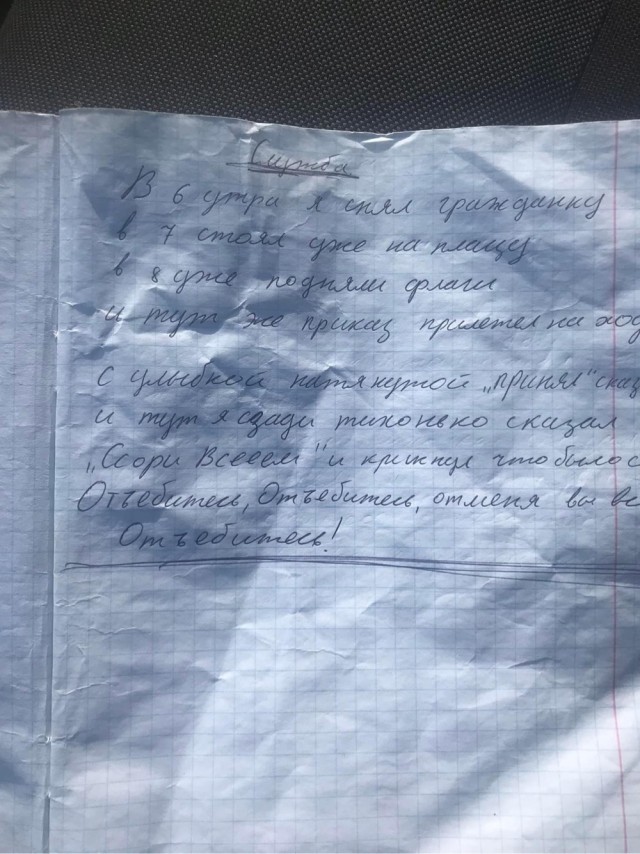 Служба
В 6 утра я снял гражданку
в 7 стоял уже на плацу
в 8 уже подняли флаги
и тут же приказ прилетел на ход
С улыбкой натянутой „принял“ сказ
и тут я сзади тихонько сказал
„Ссори Всееем“ и крикнул что было с
Отъебитесь, Отъебитесь, отменя вы вс
Отъебитесь!